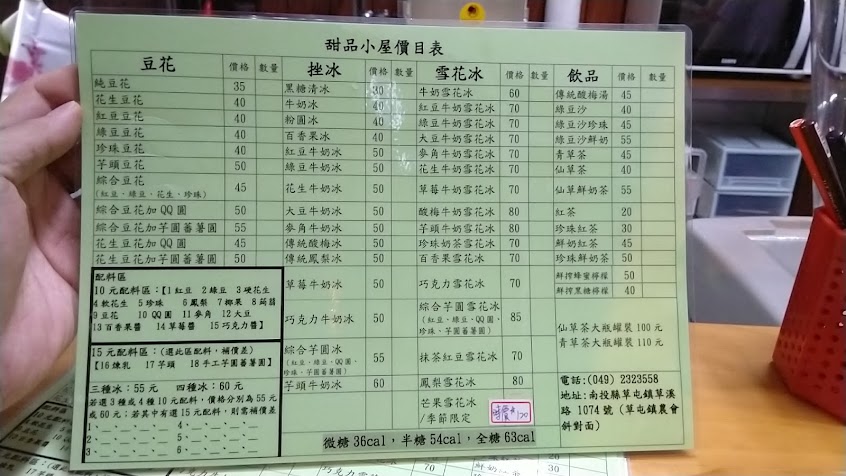 甜品小屋價目表
豆花 價格 數量
純豆花 35
花生豆花 40
紅豆豆花 40
綠豆豆花 40
珍珠豆花 40
芋頭豆花 50
綜合豆花 45
(紅豆、綠豆、花生、珍珠)
綜合豆花加QQ圓 50
綜合豆花加芋圓蕃薯圓 55
花生豆花加QQ圓 45
花生豆花加芋圓蕃薯圓 50
配料區
10元配料區:【1紅豆 2綠豆 3硬花生
4軟花生 5珍珠 6鳳梨 7椰果 8蒟蒻
9豆花 10QQ圓 11麥角 12大豆
13百香果醬 14草莓醬 15巧克力醬】
15元配料區:(選此區配料,補價差)
【16煉乳 17芋頭 18手工芋圓蕃薯圓】
三種冰:55元 四種冰:60元
若選3種或4種10元配料,價格分別為55元
或60元;若其中有選15元配料,則需補價差
1、 4、
2、 5、
3、 6、
挫冰 價格 數量
黑糖清冰 30
牛奶冰 40
粉圓冰 40
百香果冰 40
紅豆牛奶冰 50
綠豆牛奶冰 50
花生牛奶冰 50
大豆牛奶冰 50
麥角牛奶冰 50
傳統酸梅冰 50
傳統鳳梨冰 50
草莓牛奶冰 50
巧克力牛奶冰 50
綜合芋圓冰 55
(紅豆、綠豆、QQ圓、
珍珠、芋圓蕃薯圓)
芋頭牛奶冰 60
雪花冰 價格 數量
牛奶雪花冰 60
紅豆牛奶雪花冰 70
綠豆牛奶雪花冰 70
大豆牛奶雪花冰 70
麥角牛奶雪花冰 70
花生牛奶雪花冰 70
草莓牛奶雪花冰 70
酸梅牛奶雪花冰 80
芋頭牛奶雪花冰 80
珍珠奶茶雪花冰 70
百香果雪花冰 70
巧克力雪花冰 70
綜合芋圓雪花冰 85
(紅豆、綠豆、QQ圓、
珍珠、芋圓蕃薯圓)
抹茶紅豆雪花冰 70
鳳梨雪花冰 80
芒果雪花冰
/季節限定
飲品 價格 數量
傳統酸梅湯 45
綠豆沙 40
綠豆沙珍珠 45
綠豆沙鮮奶 55
青草茶 45
仙草茶 40
仙草鮮奶茶 55
紅茶 20
珍珠紅茶 30
鮮奶紅茶 45
珍珠鮮奶茶 50
鮮搾蜂蜜檸檬 50
鮮搾黑糖檸檬 40
仙草茶大瓶罐裝100元
青草茶大瓶罐裝110元
電話:(049)2323558
地址:南投縣草屯鎮草溪
路1074號(草屯鎮農會
斜對面)
微糖36cal,半糖54cal,全糖63cal